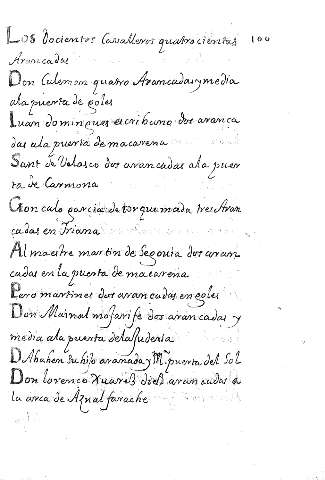 Los Docientos Cavalleros quatrocientas 100
Arancadas
Don Culeman quatro Arancadas y media
ala puerta de goles
Iuan domingues escribano dos aranca
das ala puerta de macarena
Sant de Velasco dos arancadas ala puer
ta de Carmona
Goncalo garcia de torquemada tres Aran
cadas en Triana
Al maestre martin de Segouia dos aran
cadas en la puerta de macarena
Pero martines dos arancadas en goles
Don Mainal mojarife dos arancadas y
media ala puerta dela Juderia
D. Abuhen su hijo aranada y Mª puerta del Sol
Don lorenco Xuares dies arancadas a
la arca de Aznal farache